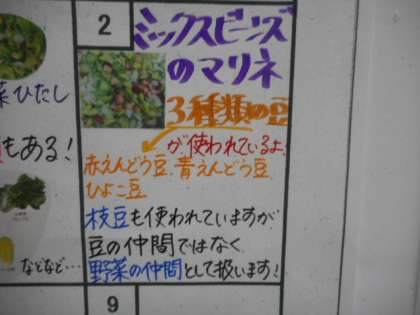 2
ミックスビーンズ
のマリネ
3種類の豆
が使われているよ。
赤えんどう豆、青えんどう豆、
ひよこ豆
枝豆も使われていますが、
豆の仲間ではなく
野菜の仲間として扱います!
9
菜ひたし
もある!
などなど…